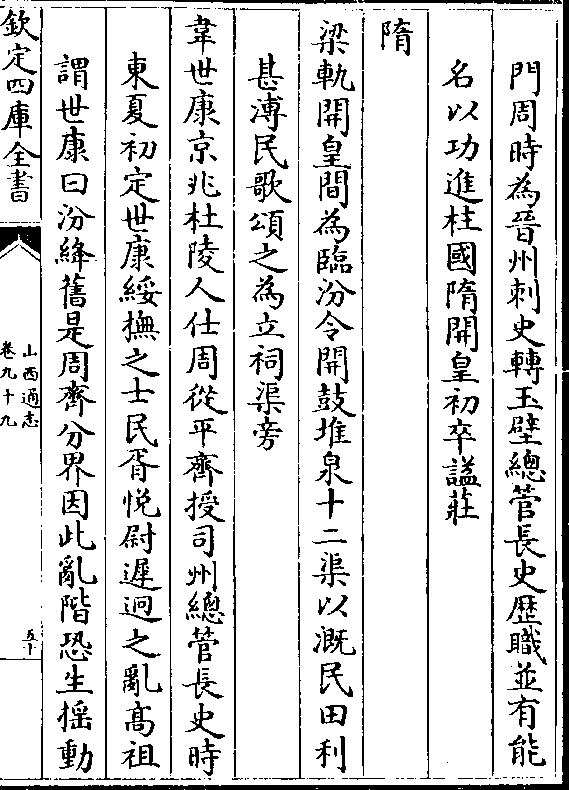 門周時為晉州刺史轉玉壁總管長史歴職並有能
名以功進柱國隋開皇初卒謚莊
隋
梁軌開皇間為臨汾令開鼓堆泉十二渠以溉民田利
甚溥民歌頌之為立祠渠旁
韋世康京兆杜陵人仕周從平齊授司州總管長史時
東夏初定世康綏撫之士民胥悦尉遲迥之亂髙祖
謂世康曰汾絳舊是周齊分界因此亂階恐生揺動
欽定四庫全書
山西通志
卷九十九
五十